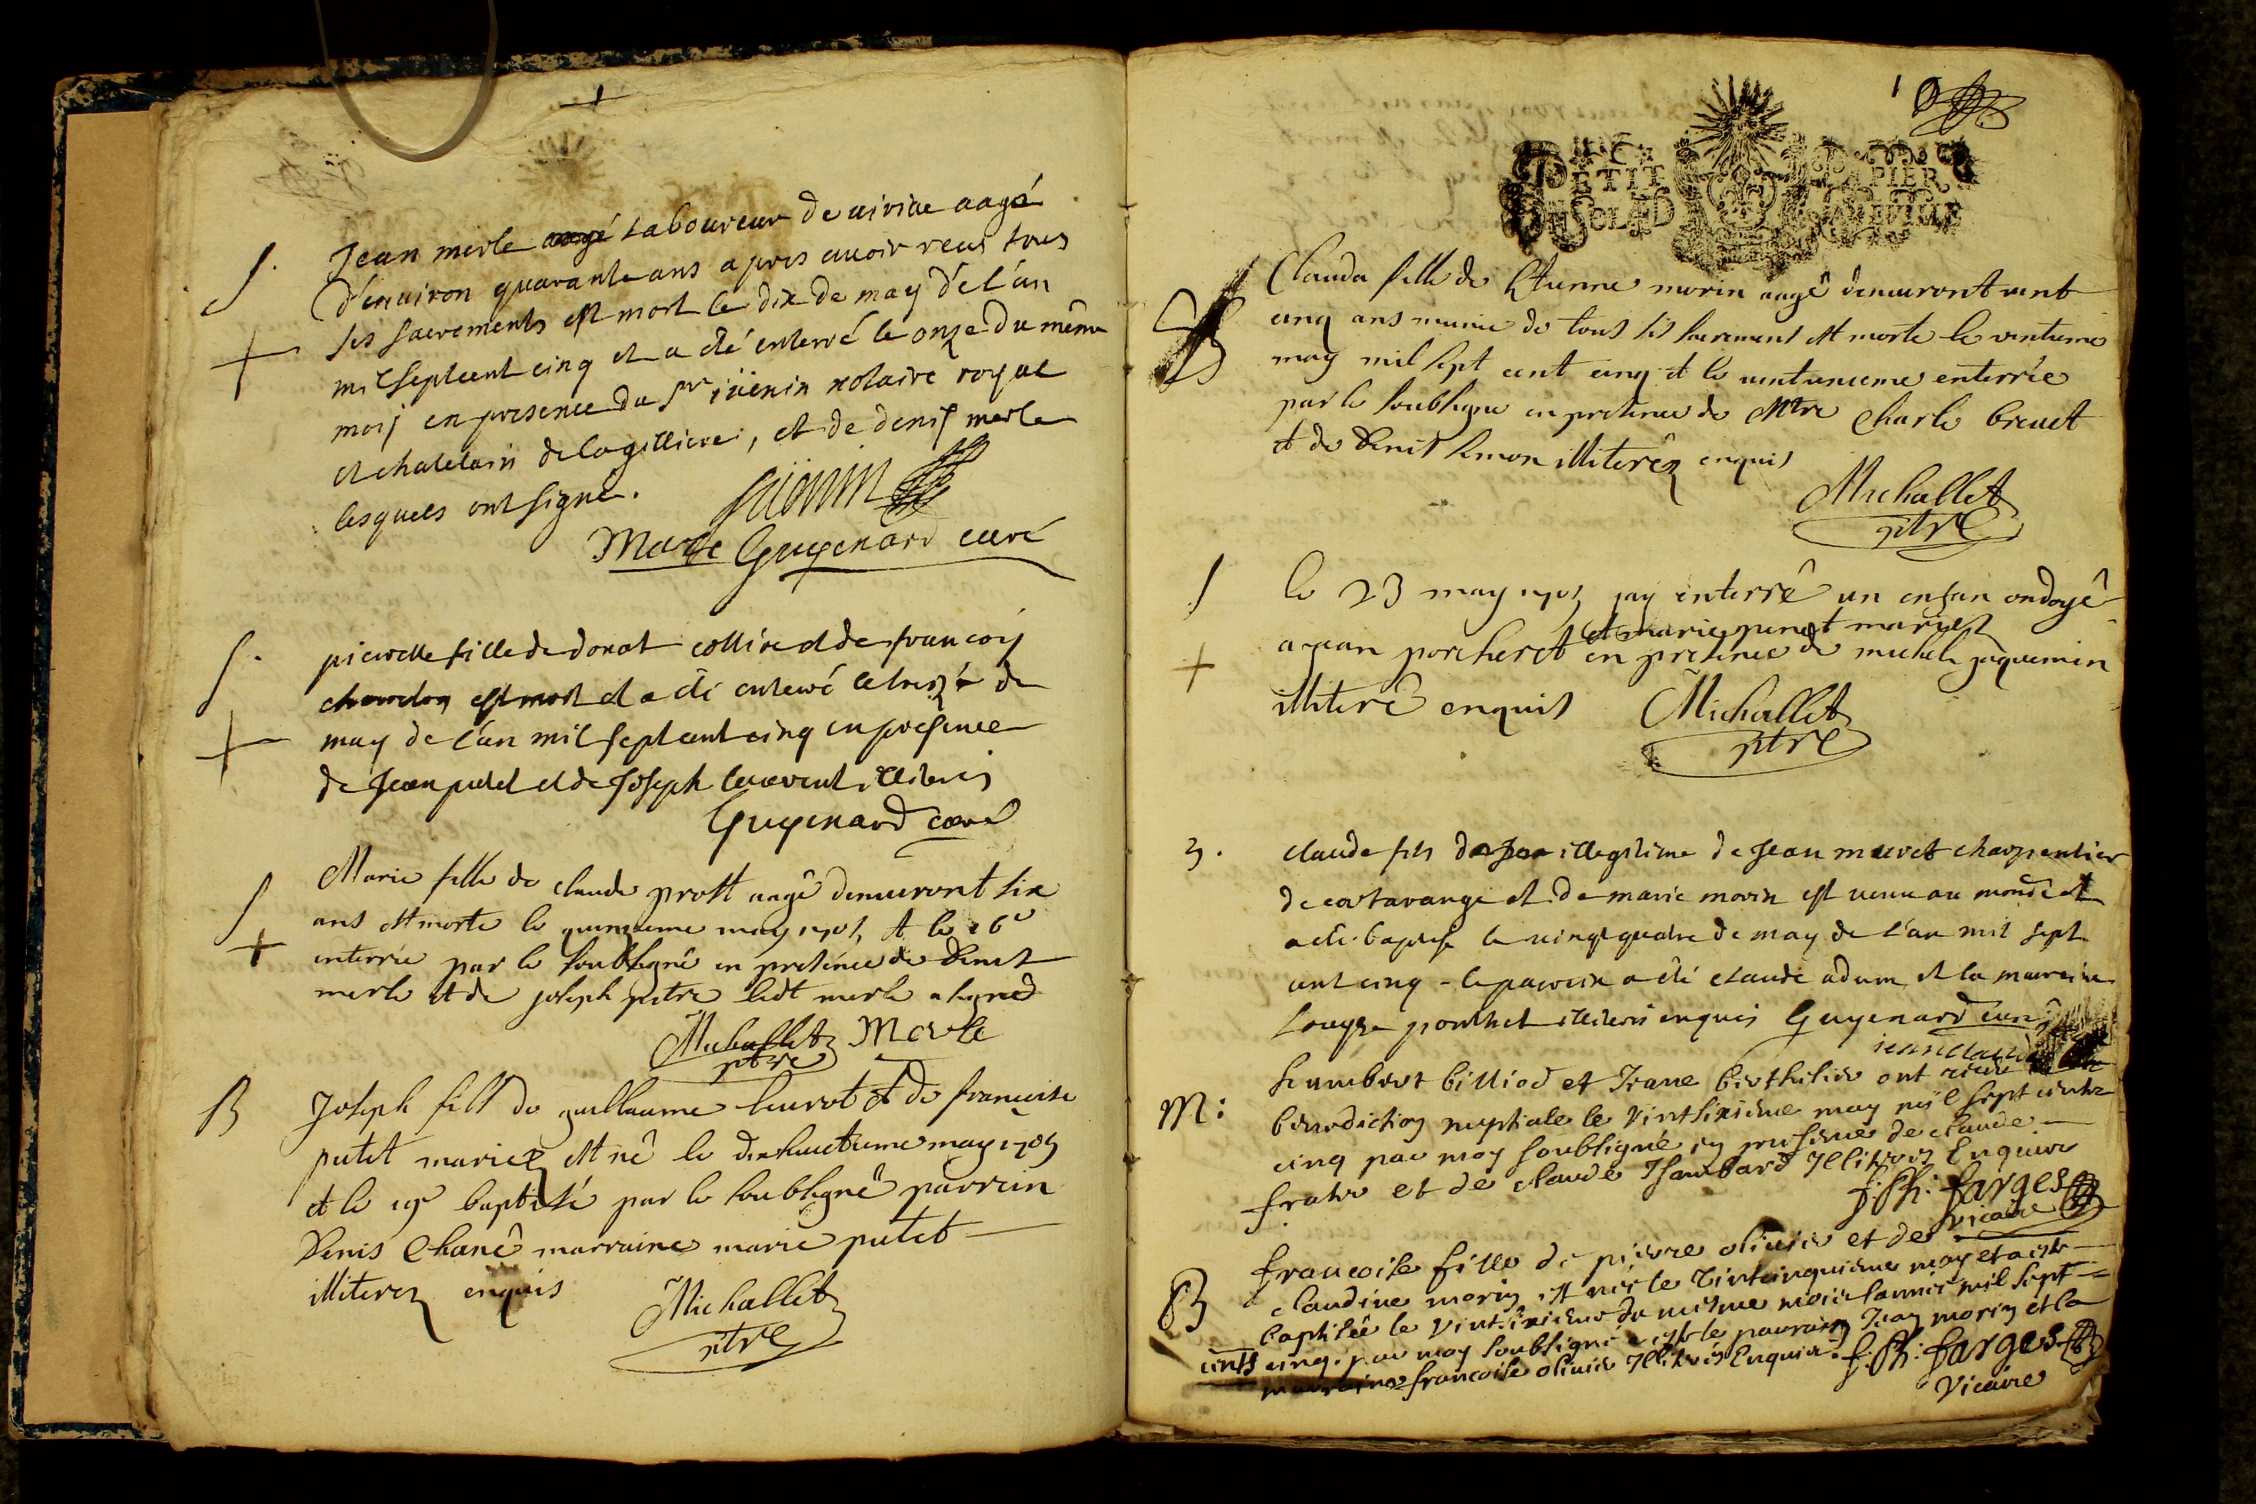 S. Jean merle laboureur de viriac aagé
d'environ quarante ans apres avoir receu tous
ses sacrements est mort le dix de may de l'an
mil septcent cinq et a été enterré le onze du même
mois en presence du Sr jüenin notaire royal
et chatelain de lagilliere, et de denis merle
lesquels ont signé.
jüenin
Merle Guyenard curé
S. pierrette fille de donat collin et de francois
est mort et a été enterré le treize de
may de l'an mil sept cent cinq en presence
de Jean putet et de Joseph illiteres
Guyenard curé
S Marie fille de claude prost aagê denuiront six
ans est morte le quinzieme may 1705 et le 16e
enterrée par le soubsignê en presence de Denis
merle et de joseph petre ledt merle a signed
Michallet Merle
ptre
B Joseph fils de guillaume leurot et de francoise
putet mariez est nê le dixhuictieme may 1705
et le 19e baptisé par le soubsignê parrein
Denis Chanê marraine marie putet
illiterez enquis
Michallet
ptre
10
PETIT PAPIER
UN SOL LAD LA FEUILLE
Clauda fille de Etienne morin aagê denuiront vint
cinq ans munie de tous ses sacrement est morte le ventieme
may mil sept cent cinq et le ventunieme enterrée
par le soubsigne en presence de Mtre Charle brevet
et de Denis simon illiterêz enquis
Michallet
ptre
S le 23 may 1705 jay enterrê un enfan ondoyê
et marie penet mariez
a jean porcheret en presence de michel jaquemin
illiterê enquis Michallet
ptre
3. claude fils illegitime de Jean muret charpentier
de cortavange et de marie morin est venu au monde et
a été baptise le vingt quatre de may de l'an mil sept
cent cinq - le parrein a été claude adam et la marreine
pouthet illiteris enquis Guyenard curé
jean claude
M: humbert billiod et Jeane berthelier ont receu
benediction nuptiale le vintsixieme may mil sept cents
cinq par moy soubsigné en presence de claude
frater et de claude Jsambard Jlliteres Enquis
f: Ph: farges
vicaire
B francoise fille de pierre olivier et de
claudine morin est née le vintcinquieme may et a este
baptisée le vintsixieme du mesme mois l'année mil sept
cents cinq. par moy soubsigné a este le parrain Jean morin et la
marraine francoise olivier Jlliteres Enquis. f: Ph: farges
Vicaire